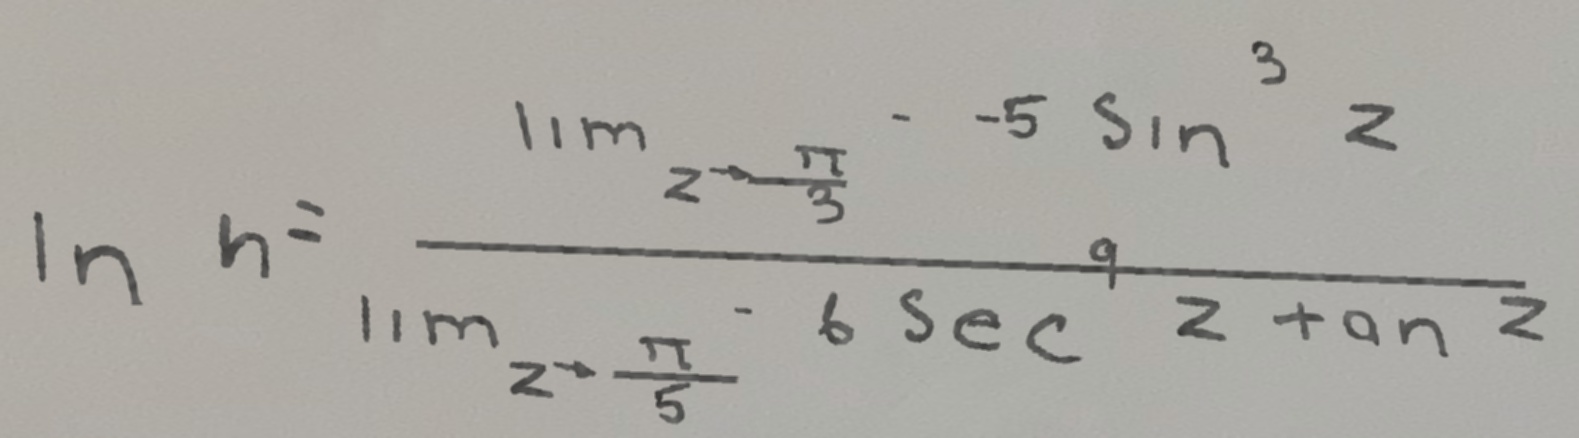 ln h = \frac{\lim_{z \to \frac{\pi}{3}^-} -5 \sin^3 z}{\lim_{z \to \frac{\pi}{5}^-} 6 \sec^9 z \tan z}